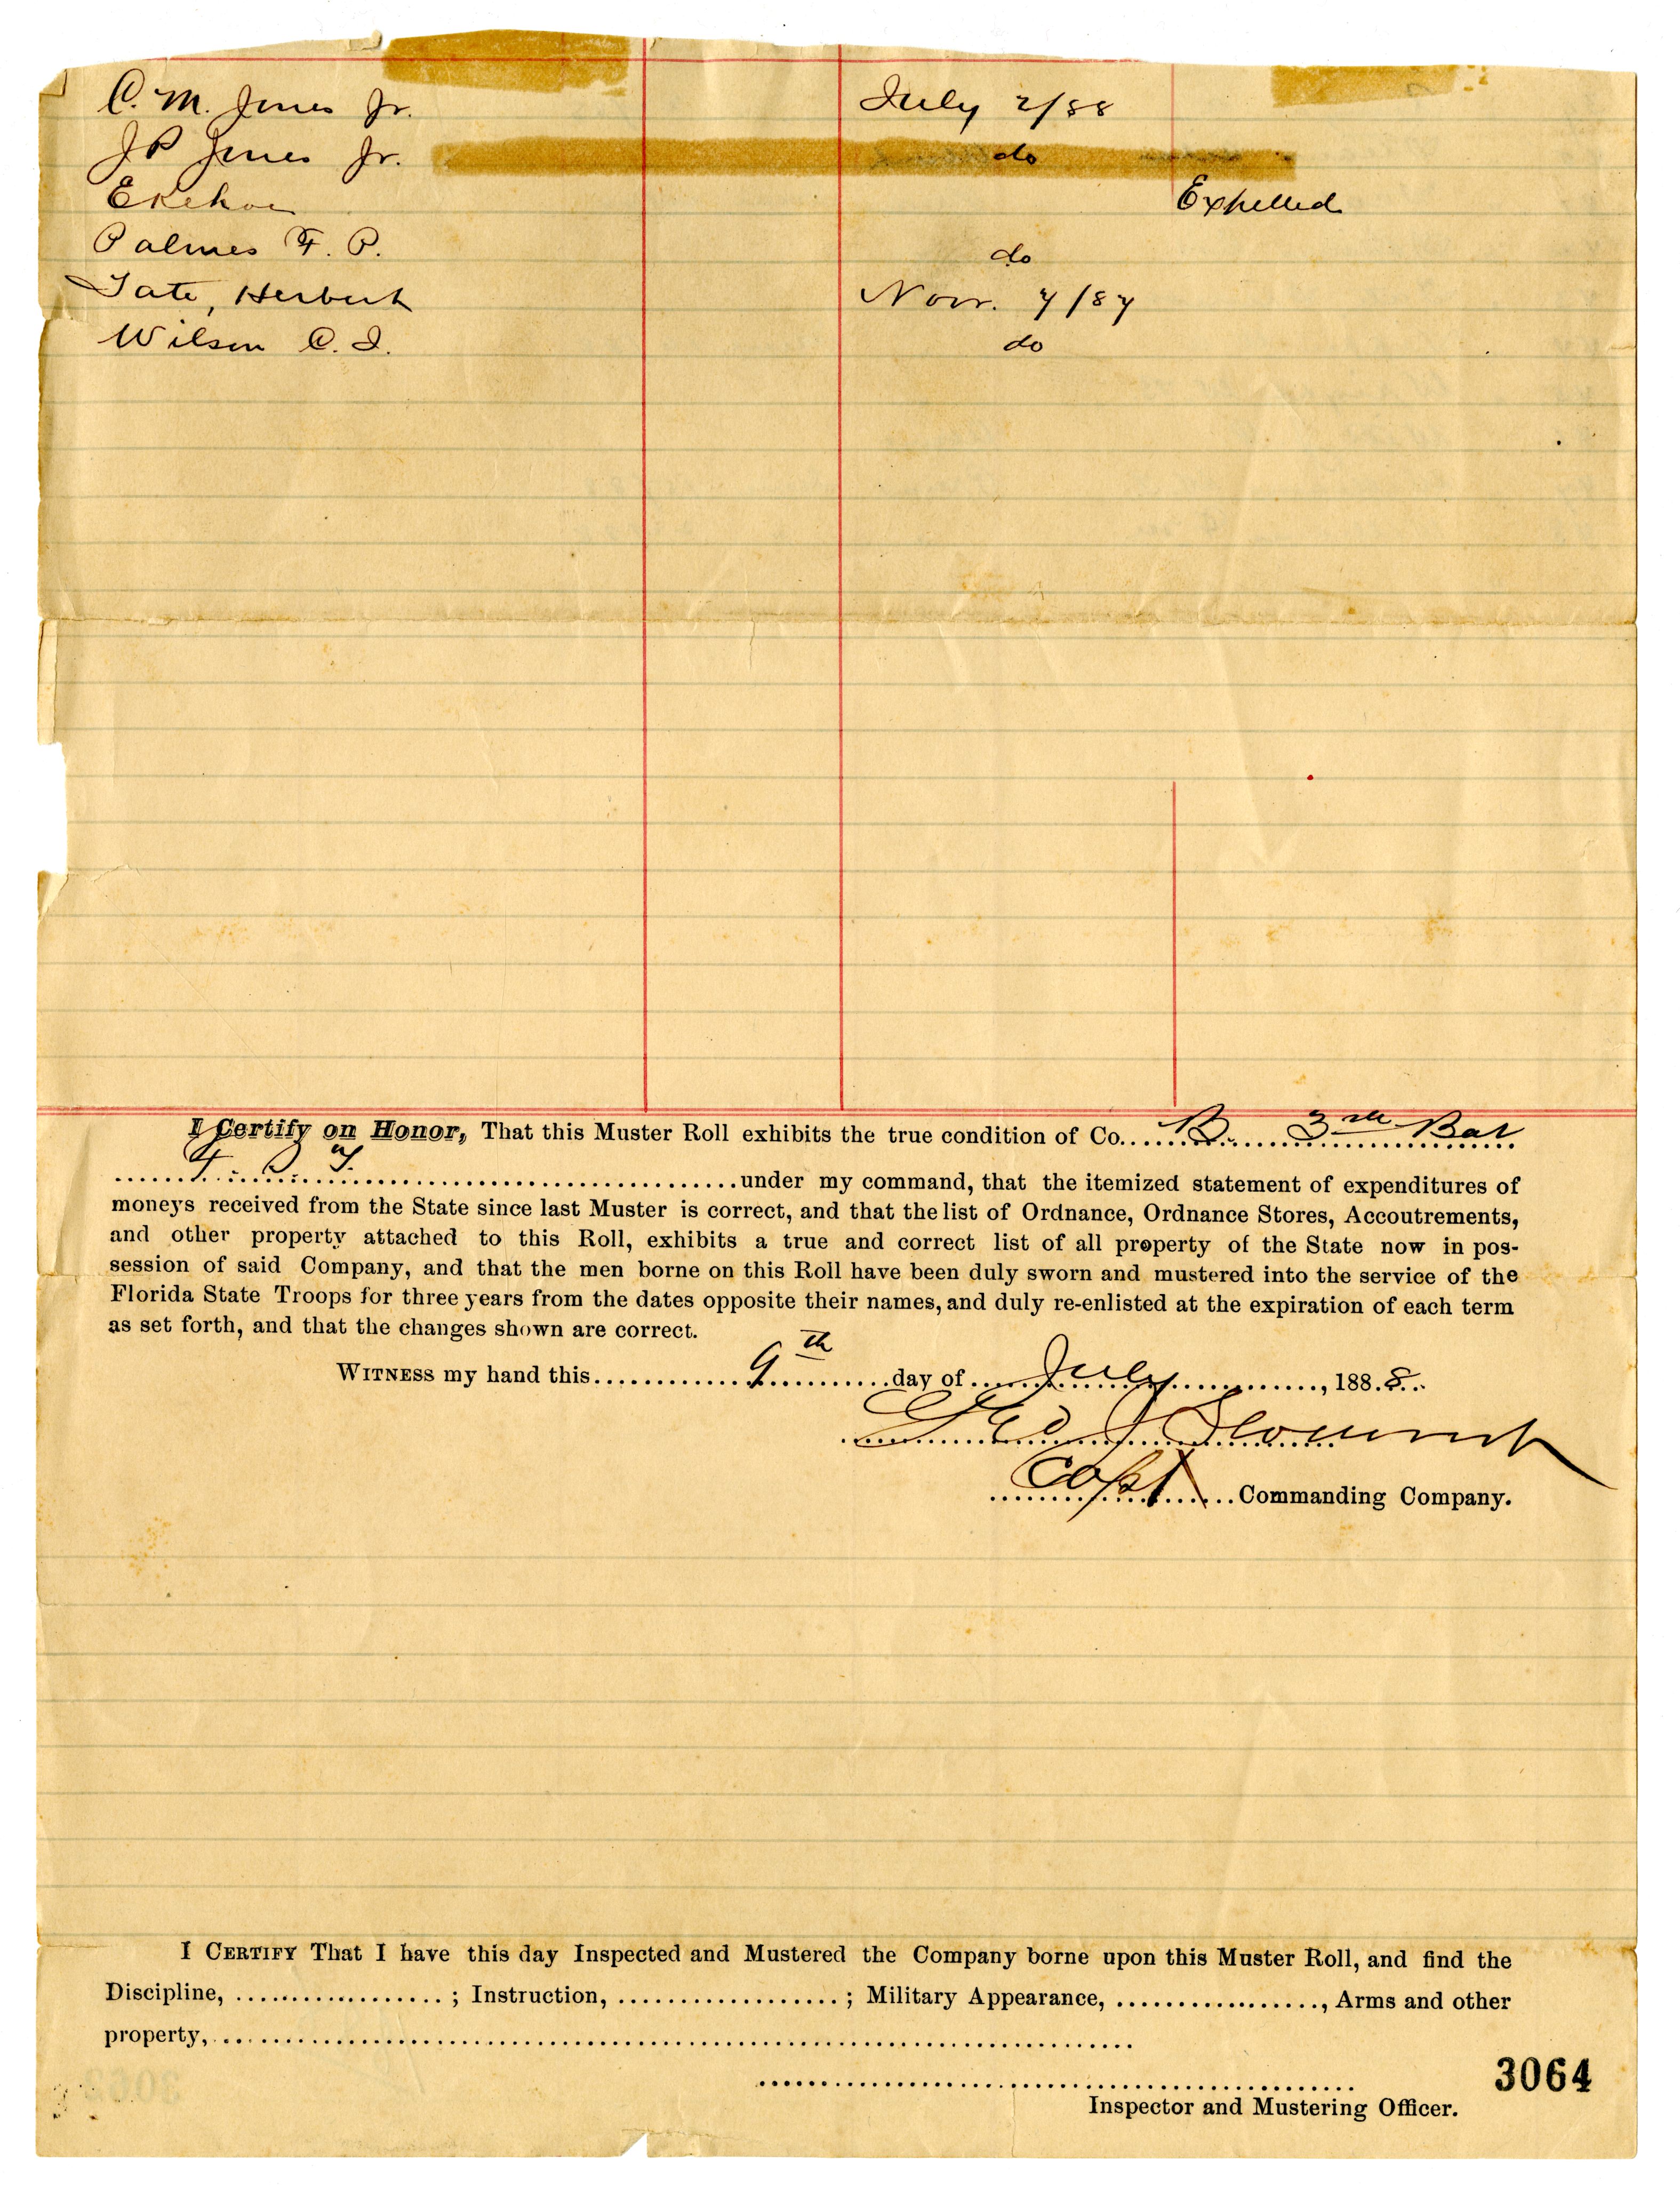 C. M. Jones Jr. July 2/88
J P Jones Jr. do
Expelled
Palmes F. P. do
Tate, Herbert Nov. 7/87
Wilson C. I. do
I Certify on Honor, That this Muster Roll exhibits the true condition of Co. B. 3rd Bat
F. S. T. under my command, that the itemized statement of expenditures of
moneys received from the State since last Muster is correct, and that the list of Ordnance, Ordnance Stores, Accoutrements,
and other property attached to this Roll, exhibits a true and correct list of all property of the State now in pos-
session of said Company, and that the men borne on this Roll have been duly sworn and mustered into the service of the
Florida State Troops for three years from the dates opposite their names, and duly re-enlisted at the expiration of each term
as set forth, and that the changes shown are correct.
WITNESS my hand this 9th day of July, 1888.
Capt Commanding Company.
I CERTIFY That I have this day Inspected and Mustered the Company borne upon this Muster Roll, and find the
Discipline, ; Instruction, ; Military Appearance, , Arms and other
property,
3064
Inspector and Mustering Officer.